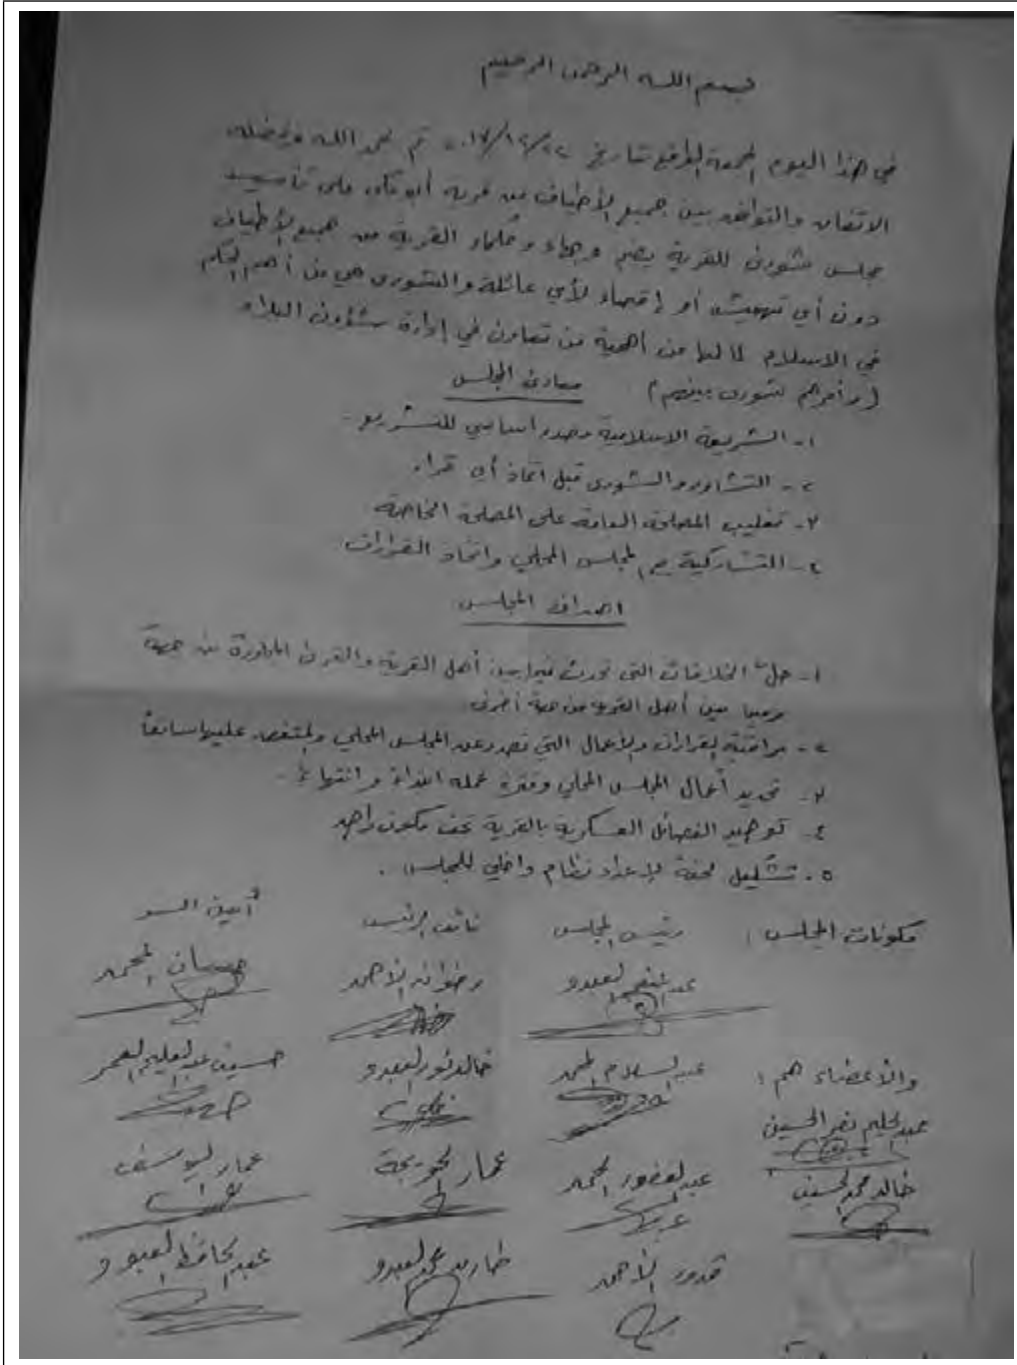 بسم الله الرحمن الرحيم
في هذا اليوم الجمعة الواقع بتاريخ ٢٢/١٢/٢٠١٧ تم بحمد الله وبفضله
الاتفاق والتوافق بين جميع الأطياف من قرية على تأسيس
مجلس شورى للقرية يضم وجهاء وحكماء القرية من جميع الأطياف
دون أي تهميش أو إقصاء لأي عائلة والشورى هي من أهم الحكم
في الاسلام لما لها من أهمية من تعاون في إدارة شؤون البلاد
(وأمرهم شورى بينهم) مبادئ المجلس
١- الشريعة الاسلامية مصدر أساسي للتشريع.
٢- التشاور والشورى قبل اتخاذ أي قرار
٣- تغليب المصلحة العامة على المصلحة الخاصة
٤- التشاركية مع المجلس المحلي واتخاذ القرارات
اهداف المجلس
١- حل الخلافات التي تحدث فيما بين أهل القرية والقرى المجاورة من جهة
وفيما بين أهل القرية من جهة أخرى
٢- مراقبة القرارات والأعمال التي تصدر عن المجلس المحلي والمتفق عليها سابقاً
٣- تحديد أعمال المجلس المحلي وفترة عمله ابتداءً وانتهاءً.
٤- توحيد الفصائل العسكرية بالقرية تحت مكون واحد
٥- تشكيل لجنة لإعداد نظام داخلي للمجلس.
مكونات المجلس: رئيس المجلس نائب الرئيس أمين السر
عبد المنعم العبدو رضوان الأحمد حسان المحمد
والأعضاء هم: عبد السلام المحمد خالد نور العبدو حسين عبد العليم العمر
عبد الحليم نصر الحسين عبد الغفور المحمد عمار عمار اليوسف
خالد محمد الحسين قدور الأحمد طارق محمد العبدو عبد الحافظ العبدو